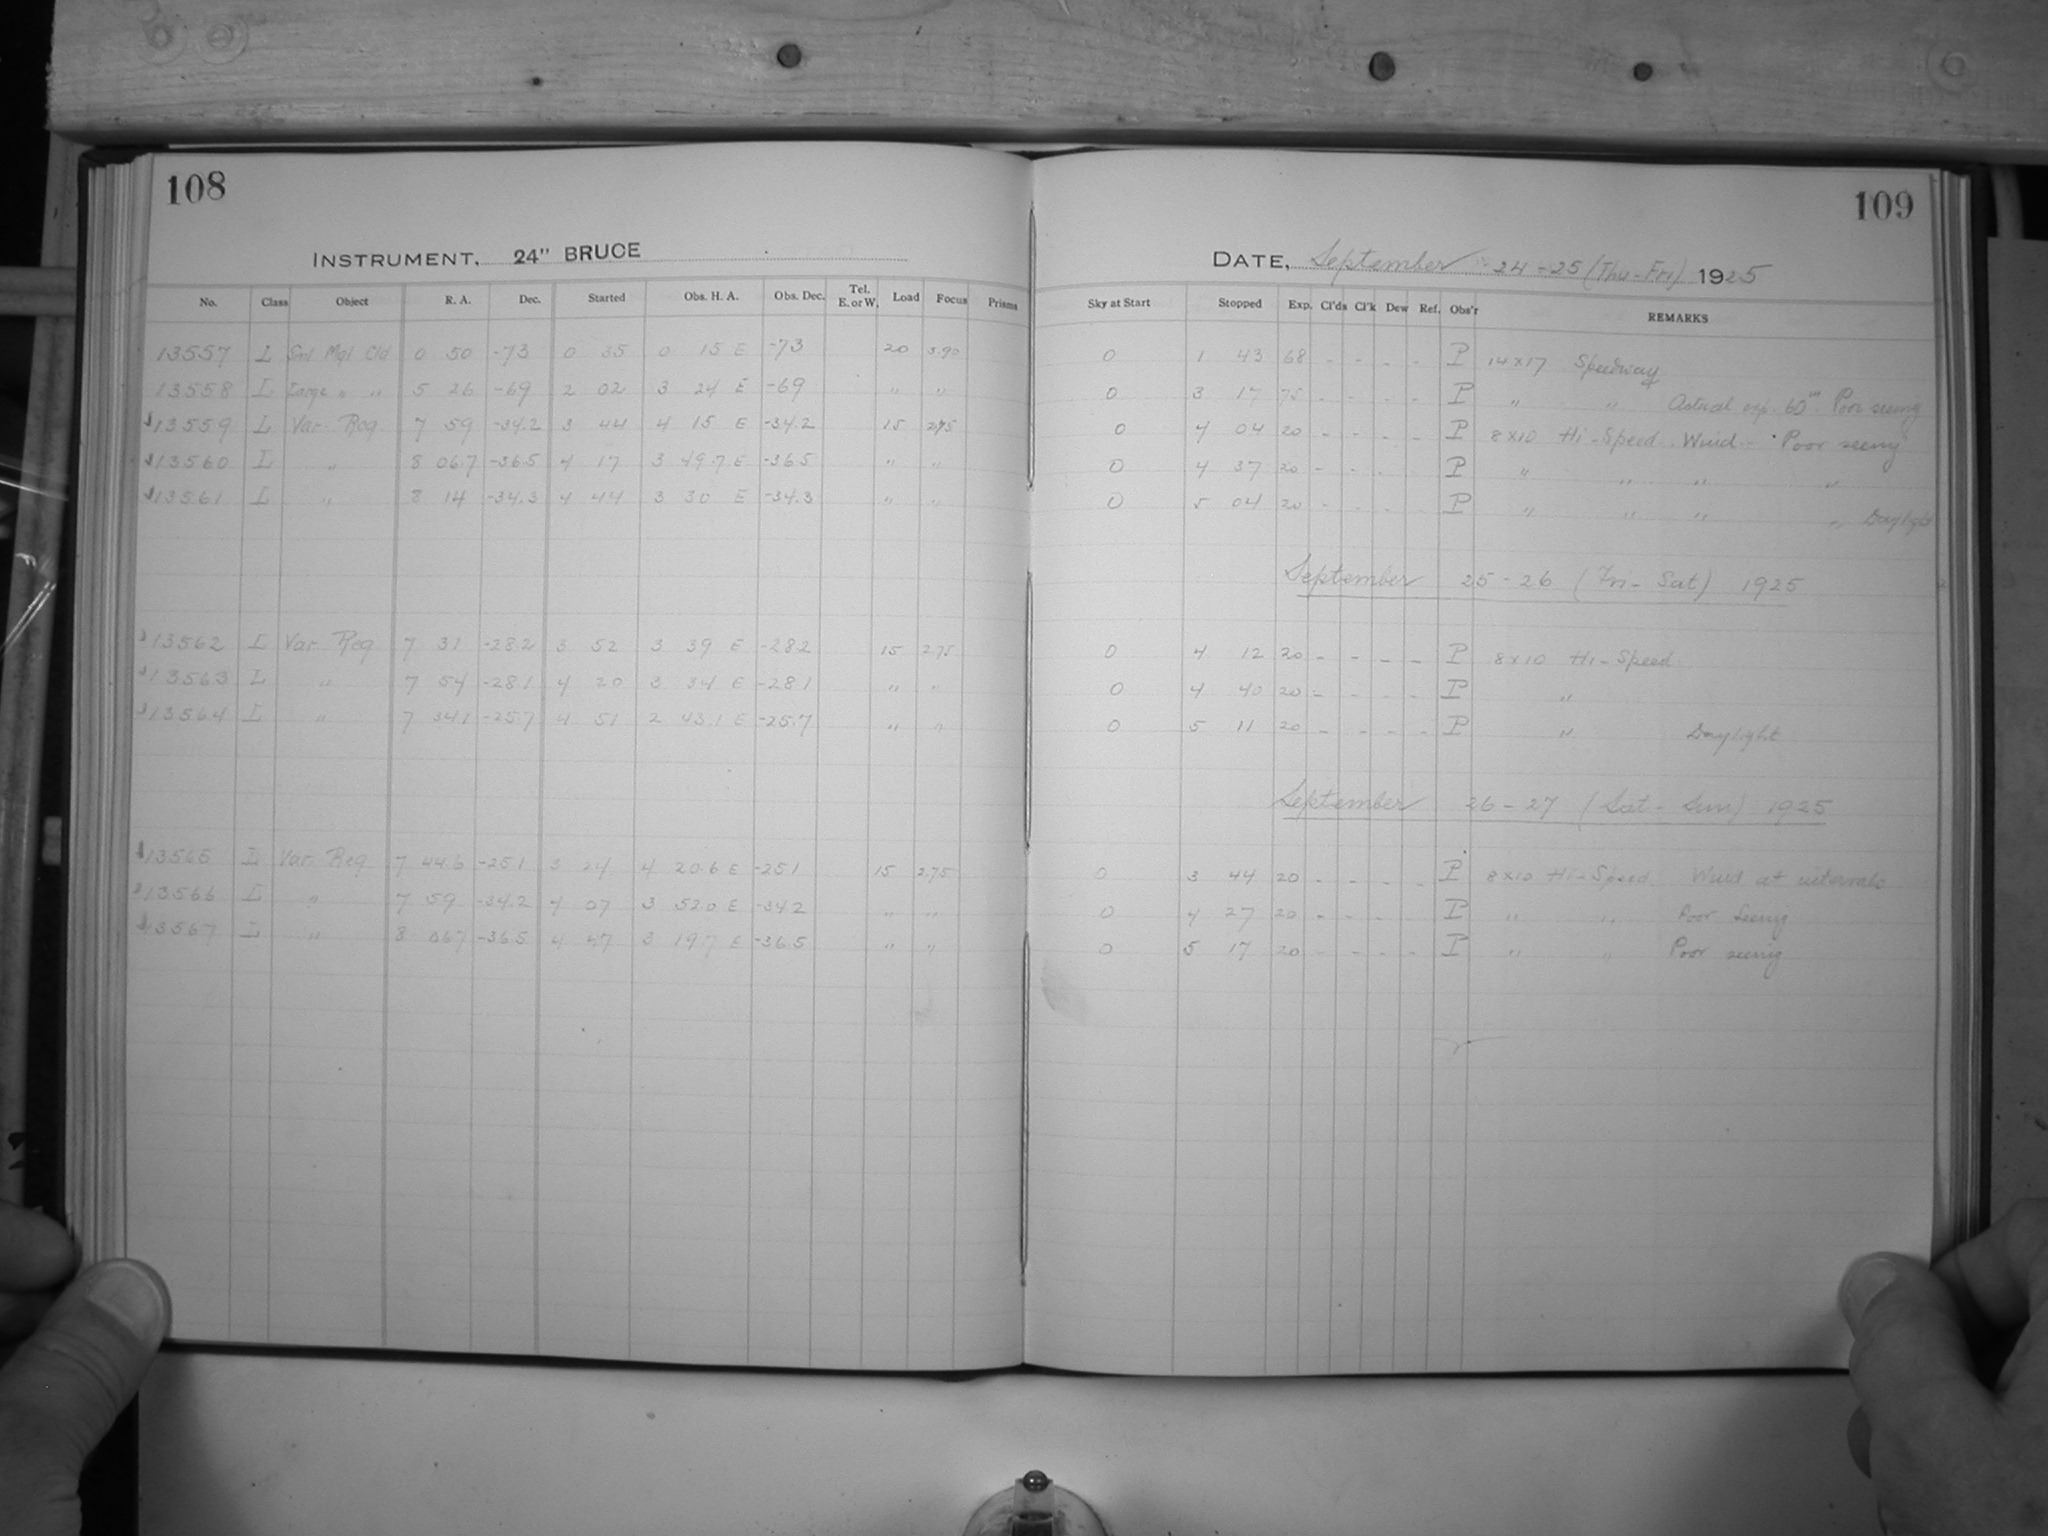 108
INSTRUMENT, 24" BRUCE
No. Class Object R. A. Dec. Started Obs. H. A. Obs. Dec. Tel. E. or W. Load Focus Prisms
13557 L Sml Mgl Cld 0 50 -73 0 35 0 15 E -73 20 3.90
13558 L Large " " 5 26 -69 2 02 3 24 E -69 " "
13559 L Var. Reg. 7 59 -34.2 3 44 4 15 E -34.2 15 2.75
13560 L " 8 06.7 -36.5 4 17 3 49.7 E -36.5 " "
13561 L " 8 14 -34.3 4 44 3 30 E -34.3 " "
13562 L Var. Reg 7 31 -28.2 3 52 3 39 E -28.2 15 2.75
13563 L " 7 54 -28.1 4 20 3 34 E -28.1 " "
13564 L " 7 34.1 -25.7 4 51 2 43.1 E -25.7 " "
13565 L Var. Reg 7 44.6 -25.1 3 24 4 20.6 E -25.1 15 2.75
13566 L " 7 59 -34.2 4 07 3 52.0 E -34.2 " "
13567 L " 8 06.7 -36.5 4 47 3 19.7 E -36.5 " "
109
DATE, September 24-25 (Thu-Fri) 1925
Sky at Start Stopped Exp. Cl'ds Cl'k Dew Ref. Obs'r REMARKS
0 1 43 68 - - - - P 14x17 Speedway
0 3 17 75 - - - - P " " Actual exp. 60m Poor seeing
0 4 04 20 - - - - P 8x10 Hi-Speed Wind - Poor seeing
0 4 37 20 - - - - P " " " "
0 5 04 20 - - - - P " " " " Daylight
September 25-26 (Fri-Sat) 1925
0 4 12 20 - - - - P 8x10 Hi-Speed
0 4 40 20 - - - - P "
0 5 11 20 - - - - P " Daylight
September 26-27 (Sat-Sun) 1925
0 3 44 20 - - - - P 8x10 Hi-Speed Wind at intervals
0 4 27 20 - - - - P " " Poor Seeing
0 5 17 20 - - - - P " " Poor seeing